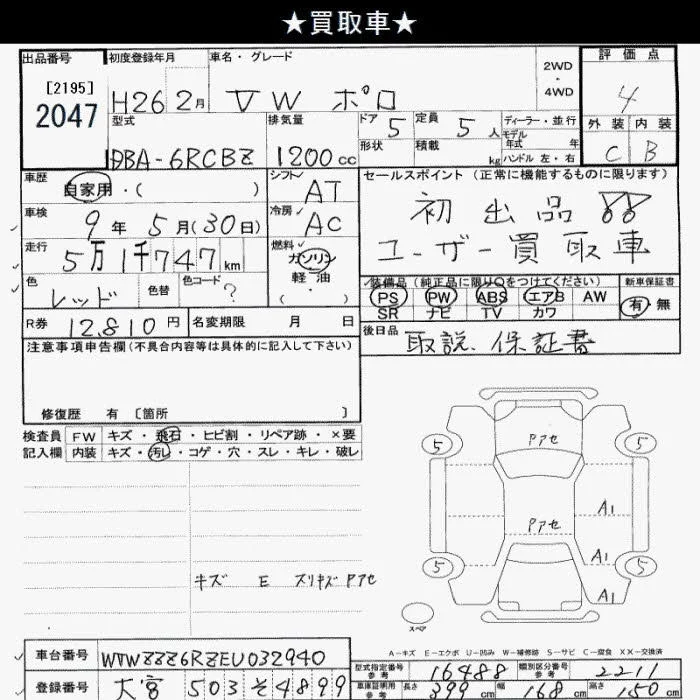 ★買取車★
出品番号 初度登録年月 車名・グレード 2WD・4WD 評価点
[2195]
2047 H26 2月 VW ポロ 4
型式 排気量 ドア 5 定員 5人 ディーラー・並行 外装 内装
モデル年式 年
DBA-6RCBZ 1200cc 形状 積載 kg ハンドル 左・右 C B
車歴 自家用・( ) シフト AT セールスポイント(正常に機能するものに限ります)
車検 9年5月(30日) 冷房 AC 初出品!!
走行 5万1千747km 燃料 ガソリン ユーザー買取車
軽・油
( ・ )
色 レッド 色替 色コード ? 装備品(純正品に限り○をつけてください) 新車保証書
PS PW ABS エアB AW 有・無
SR ナビ TV カワ
R券 12,810円 名変期限 月 日 後日品 取説、保証書
注意事項申告欄(不具合内容等は具体的に記入して下さい)
修復歴 有 〔箇所 〕
検査員 FW キズ・飛石・ヒビ割・リペア跡・×要
記入欄 内装 キズ・汚レ・コゲ・穴・スレ・キレ・破レ
Pアセ
5 5
A1
Pアセ
A1
5 5
キズ E スリキズ Pアセ
A1
スペア
A-キズ E-エクボ U-凹み W-補修跡 S-サビ C-腐食 XX-交換済
車台番号 WVWZZZ6RZEU032940 型式指定番号 参考 16488 類別区分番号 参考 2211
登録番号 大宮 503 そ 4899 車庫証明用 参考 長さ 399cm 幅 168cm 高さ 150cm